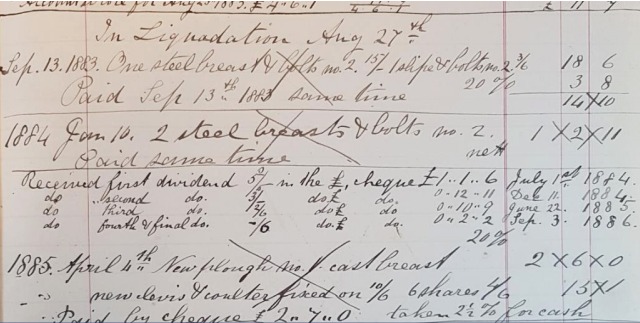 Account total for Aug 25 1883. £ 4 " 6 " 1 4 " 6 " 1 £ 11 7
In Liquadation Aug 27th
Sep. 13. 1883. One steel breast & bolts no. 2 15/- 1 slipe & bolts, no. 2 3/6 18 6
20% 3 8
Paid Sep 13th 1883 same time 14 X 10
1884 Jan 10. 2 steel breasts & bolts no. 2. 1 X 2 X 11
Paid same time nett
Received first dividend 5/- in the £, cheque £ 1 " 1 " 6 July 1st 1884.
do second do. 3/- do £ do 0 " 12 " 11 Dec 11. 1884.
do third do. 2/6 do £ do 0 " 10 " 9 June 22. 1885
do fourth & final do. -/6 do. £ do 0 " 2 " 2 Sep. 3. 1886.
20%
1885. April 4th New plough no. 1. cast breast 2 X 6 X 0
" " new clevis & coulter fixed on 10/6 6 shares 4/6 15 X 1
" Paid by cheque £ 2 " 7 " 0 taken 2½% for cash